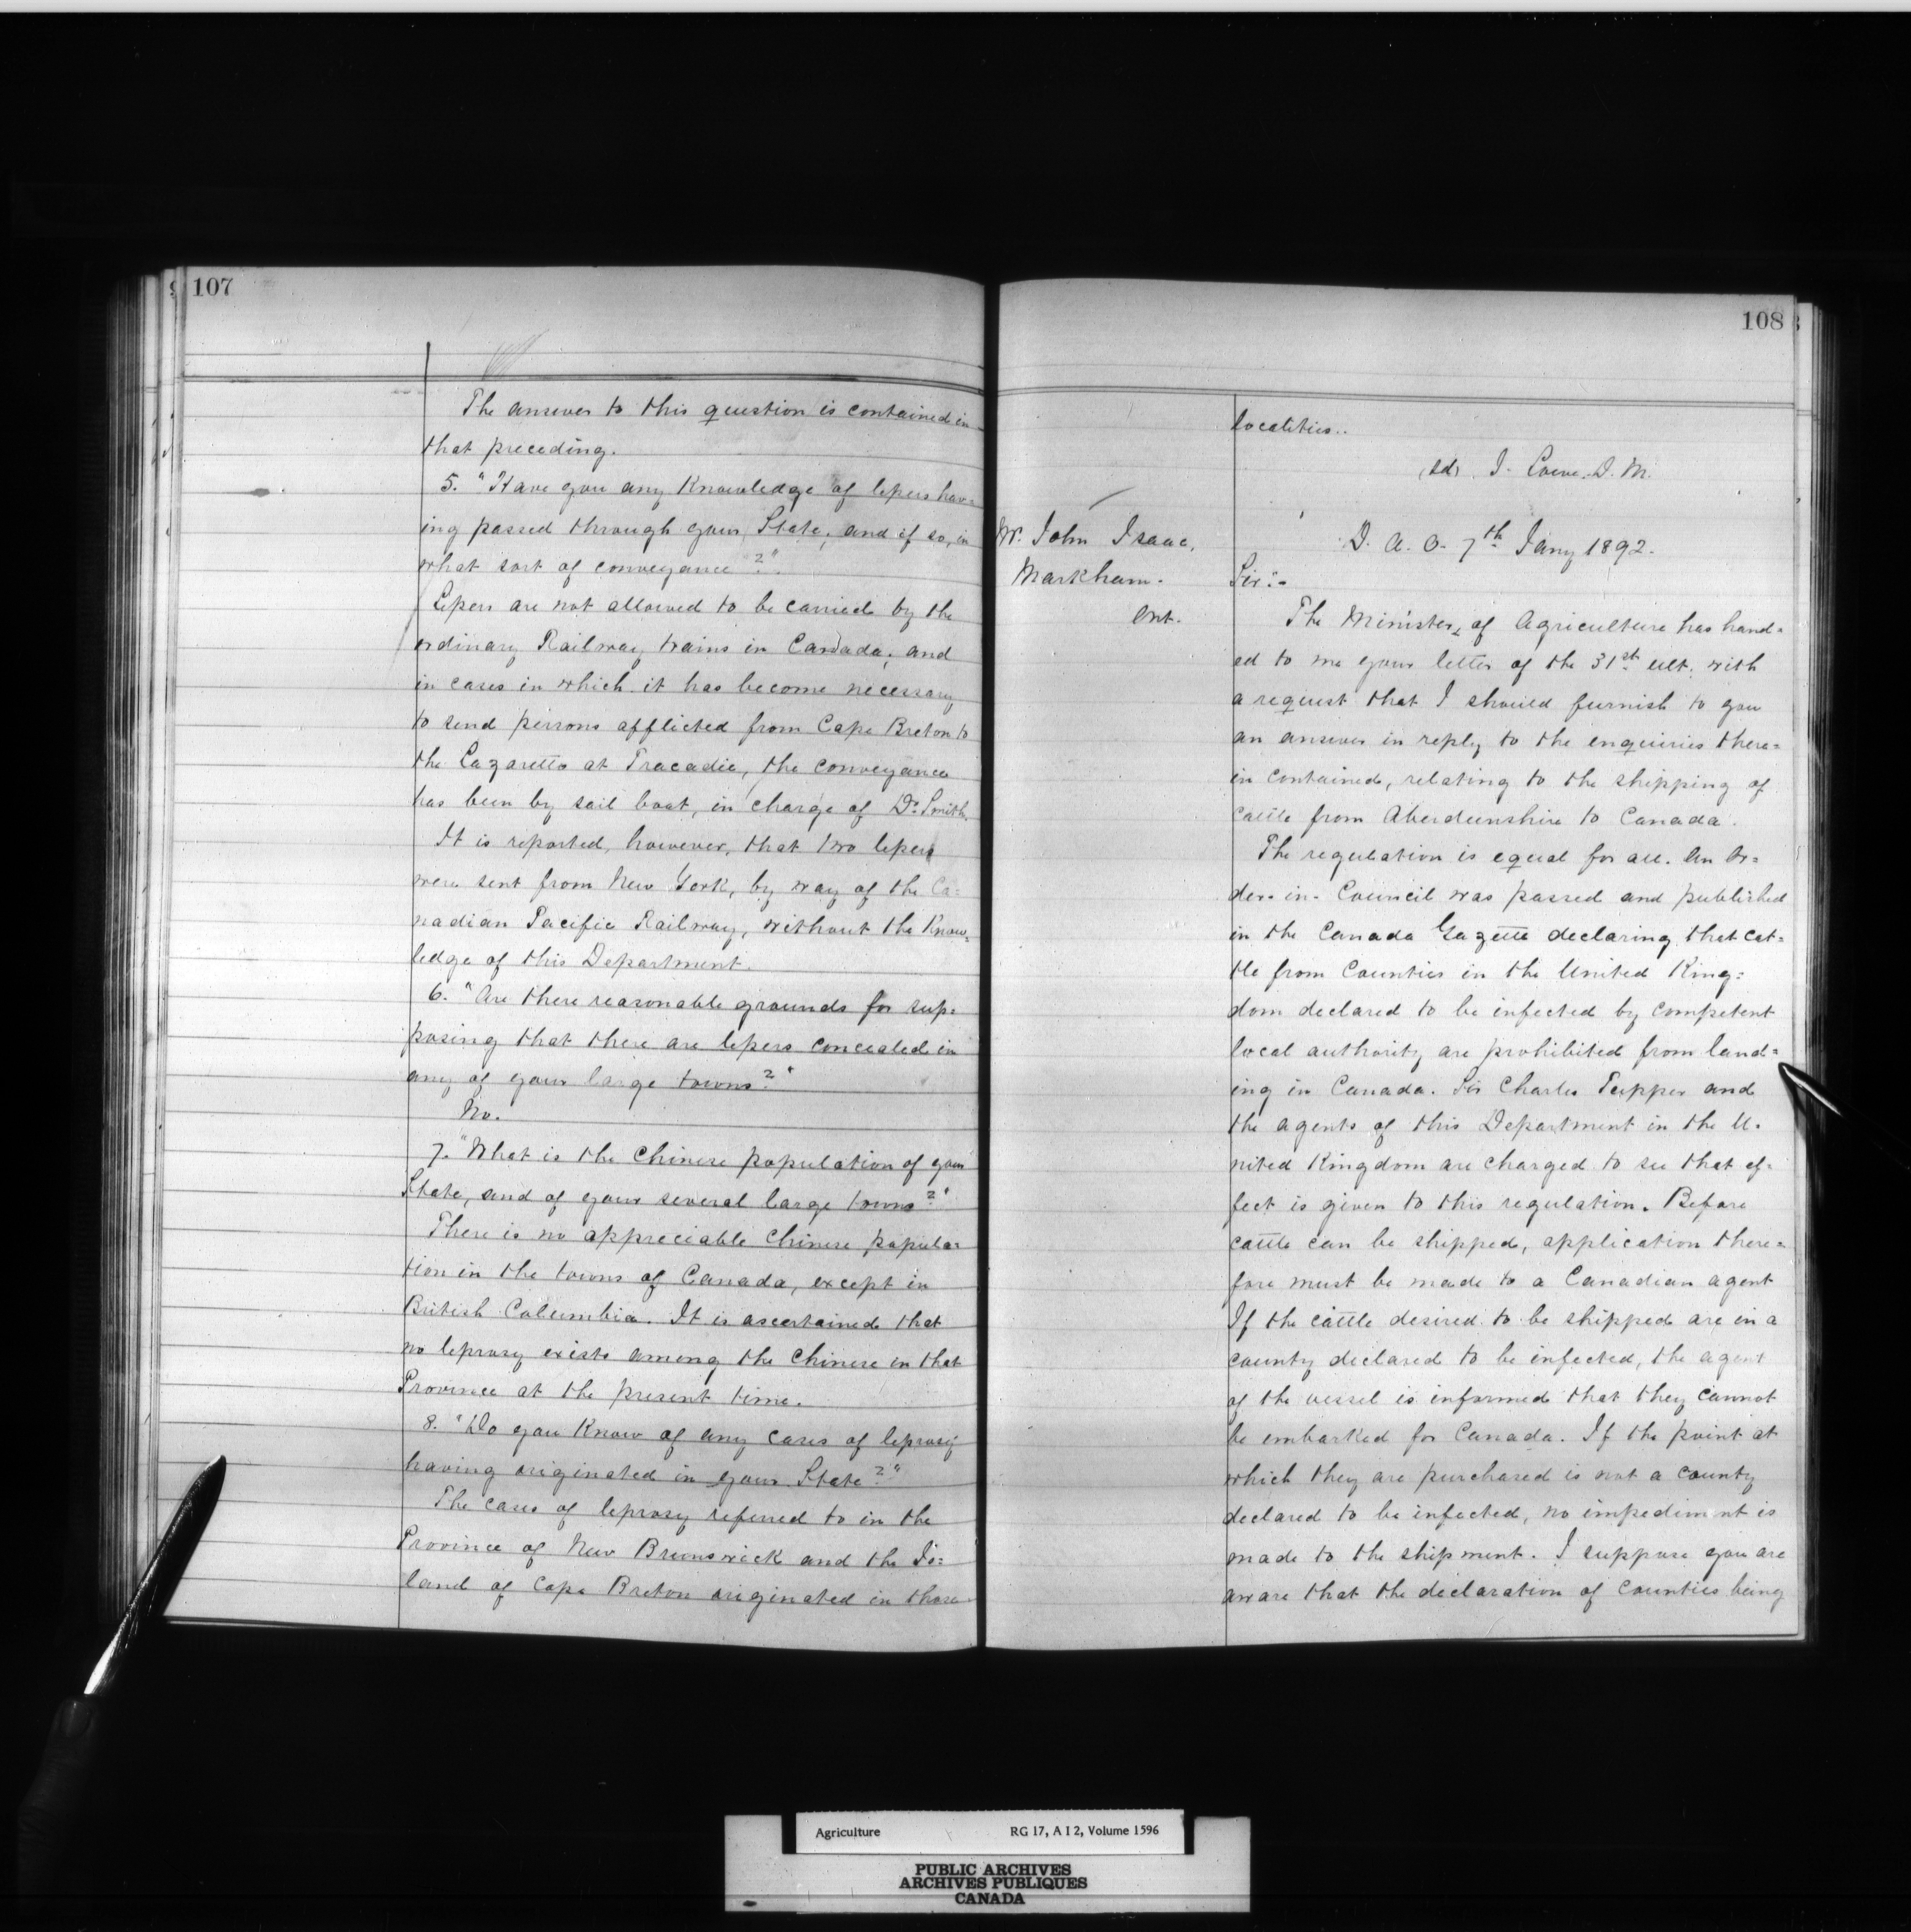 107
The answer to this question is contained in
that preceding.
5. "Have you any Knowledge of lepers hav=
ing passed through your State, and if so, in
what sort of conveyance?"
Lepers are not allowed to be carried by the
ordinary Railway trains in Canada, and
in cases in which it has become necessary
to send persons afflicted from Cape Breton to
the Lazaretto at Tracadie, the conveyance
has been by sail boat, in charge of Dr. Smith.
It is reported, however, that two lepers
were sent from New York, by way of the Ca=
nadian Pacific Railway, without the Know=
ledge of this Department.
6. "Are there reasonable grounds for sup=
posing that there are lepers concealed in
any of your large towns?"
No.
7. "What is the Chinese population of your
State, and of your several large towns?"
There is no appreciable Chinese popula=
tion in the towns of Canada, except in
British Columbia. It is ascertained that
no leprosy exists among the Chinese in that
Province at the present time.
8. "Do you Know of any cases of leprosy
having originated in your State?"
The cases of leprosy referred to in the
Province of New Brunswick and the Is=
land of Cape Breton originated in those
108
localities..
(sd) J. Lowe. D. M.
Mr. John Isaac,
Markham.
Ont.
D. A. O. 7th Jany 1892.
Sir:-
The Minister, of Agriculture has hand=
ed to me your letter of the 31st ult. with
a request that I should furnish to you
an answer in reply to the enquiries there=
in contained, relating to the shipping of
cattle from Aberdeenshire to Canada.
The regulation is equal for all. An Or=
der-in-Council was passed and published
in the Canada Gazette declaring that cat=
tle from Counties in the United King=
dom declared to be infected by competent
local authority are prohibited from land=
ing in Canada. Sir Charles Tupper and
the agents of this Department in the U=
nited Kingdom are charged to see that ef=
fect is given to this regulation. Before
cattle can be shipped, application there=
fore must be made to a Canadian agent
If the cattle desired to be shipped are in a
county declared to be infected, the agent
of the vessel is informed that they cannot
be embarked for Canada. If the point at
which they are purchased is not a county
declared to be infected, no impediment is
made to the shipment. I suppose you are
aware that the declaration of Counties being
Agriculture RG 17, A I 2, Volume 1596
PUBLIC ARCHIVES
ARCHIVES PUBLIQUES
CANADA